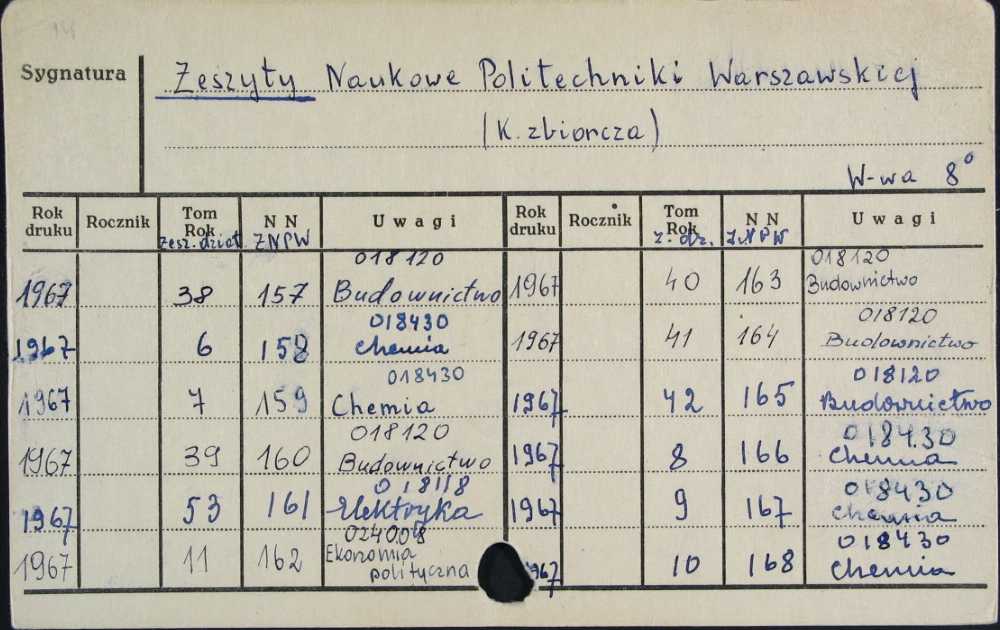 Sygnatura
Zeszyty Naukowe Politechniki Warszawskiej
(K. zbiorcza)
W-wa 8°
Rok druku Rocznik Tom Rok zesz. dział N N ZNPW Uwagi Rok druku Rocznik Tom Rok z. dz. N N Z.NPW Uwagi
1967 38 157 018120 Budownictwo 1967 40 163 018120 Budownictwo
1967 6 158 018430 Chemia 1967 41 164 018120 Budownictwo
1967 7 159 018430 Chemia 1967 42 165 018120 Budownictwo
1967 39 160 018120 Budownictwo 1967 8 166 018430 Chemia
1967 53 161 018118 Elektryka 1967 9 167 018430 Chemia
1967 11 162 024008 Ekonomia polityczna 1967 10 168 018430 Chemia